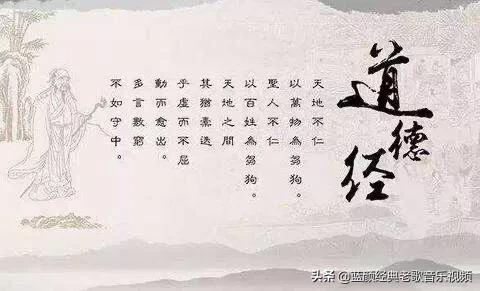 道德经
天地不仁
以萬物為芻狗。
聖人不仁
以百姓為芻狗。
天地之間
其猶橐
乎虛而不屈
動而愈出。
多言數窮
不如守中。
头条@蓝颜经典老歌音乐视频